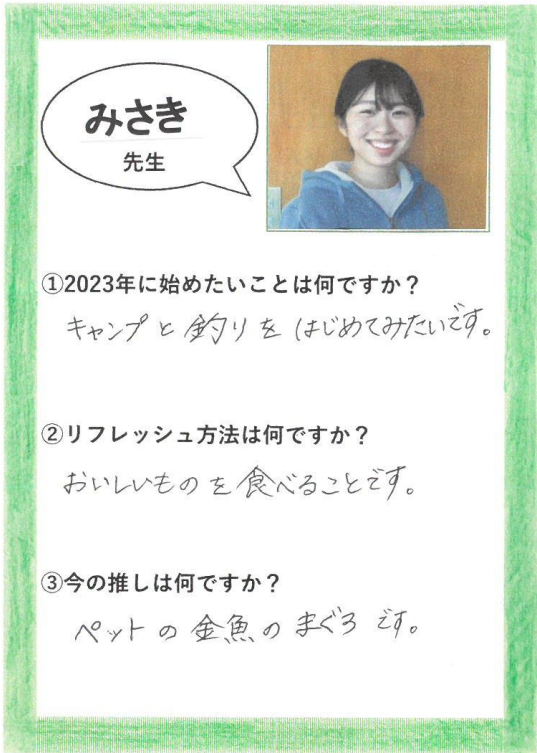 みさき
先生
①2023年に始めたいことは何ですか？
キャンプと釣りをはじめてみたいです。
②リフレッシュ方法は何ですか？
おいしいものを食べることです。
③今の推しは何ですか？
ペットの金魚のまぐろです。